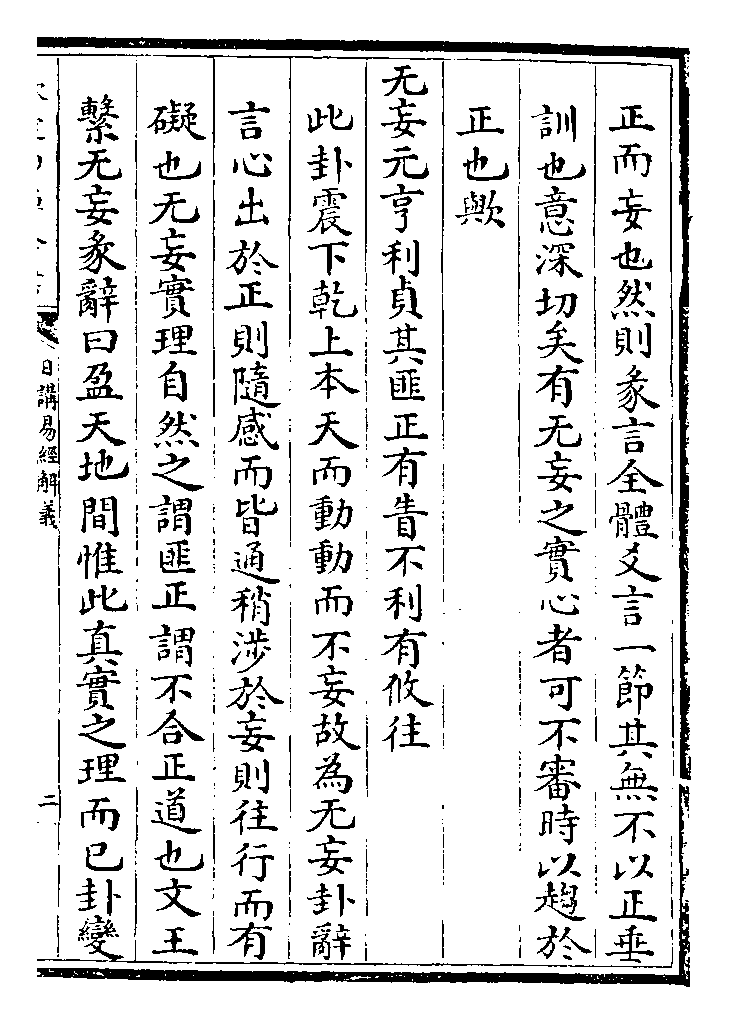 正而妄也然則彖言全體爻言一節其無不以正垂
訓也意深切矣有无妄之實心者可不審時以趨於
正也歟
无妄元亨利貞其匪正有眚不利有攸往
此卦震下乾上本天而動動而不妄故為无妄卦辭
言心出於正則隨感而皆通稍涉於妄則往行而有
礙也无妄實理自然之謂匪正謂不合正道也文王
繫无妄彖辭曰盈天地間惟此真實之理而已卦變
日講易經解義
二